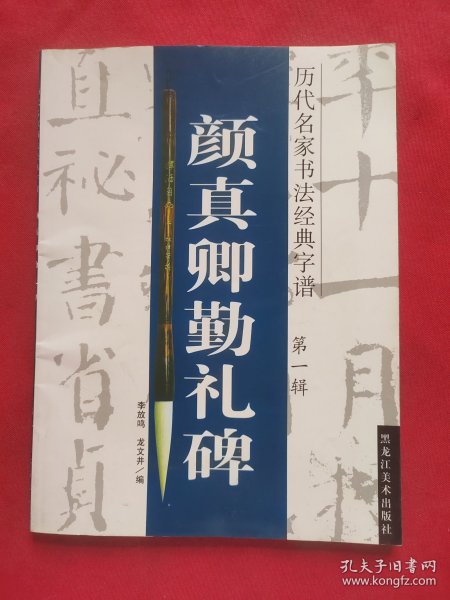 历代名家书法经典字谱
第一辑
颜真卿勤礼碑
李放鸣 龙文井/编
黑龙江美术出版社
平十一月
直祕書省貞
孔夫子旧书网
www.kongfz.com